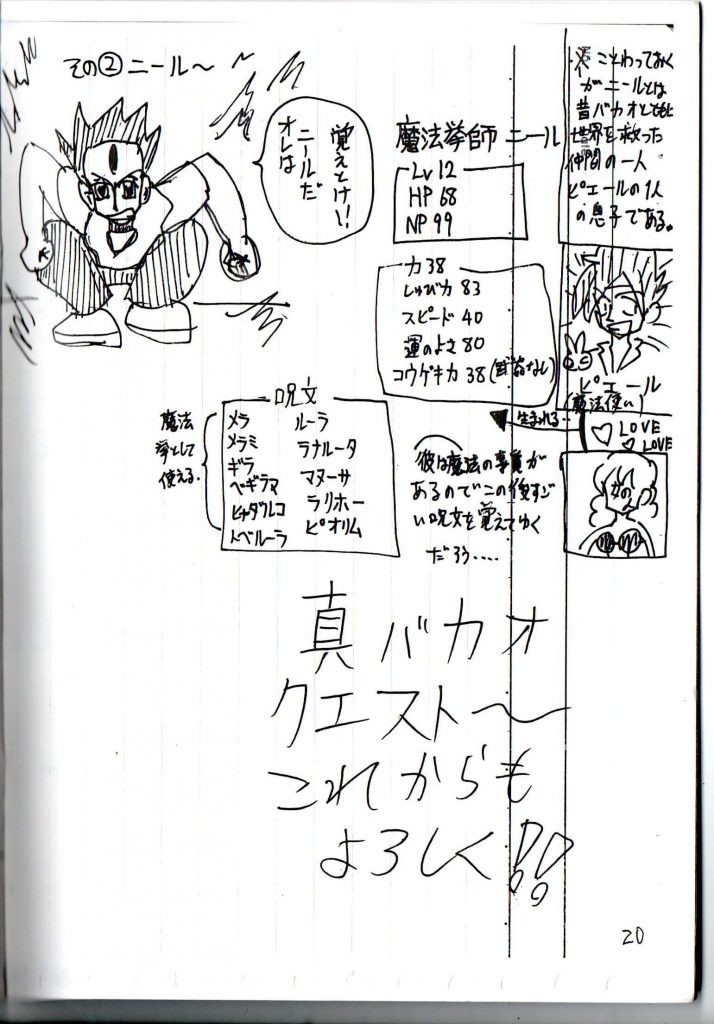 その②ニール〜
オレは
ニールだ
覚えとけ!!
魔法拳師 ニール
Lv 12
HP 68
NP 99
力 38
しゅび力 83
スピード 40
運のよさ 80
コウゲキカ 38
※ ことわっておく
がニールとは
昔バカオとともに
世界を救った
仲間の一人
ピエールの1人
の息子である。
ピエール
(魔法使い)
生まれる…
LOVE
LOVE
呪文
魔法
拳として
使える。
メラ
メラミ
ギラ
ベギラマ
ヒャダルコ
トベルーラ
ルーラ
ラナルータ
マヌーサ
ラリホー
ピオリム
彼は魔法の素質が
あるのでこの後すご
い呪文を覚えてゆく
だろう....
真バカオ
クエスト〜
これからも
よろしく!!
20